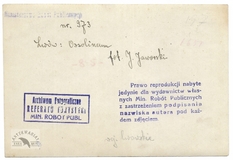 nr. 373
Lwów: Ossolineum
fot J Jaworski
Prawo reprodukcji nabyte
jedynie dla wydawnictw włas-
nych Min. Robót Publicznych
z zastrzeżeniem podpisania
nazwiska autora pod każ-
dem zdjęciem
Archiwum Fotograficzne
REFERATU TURYSTYKI
MIN. ROBÓT PUBL.